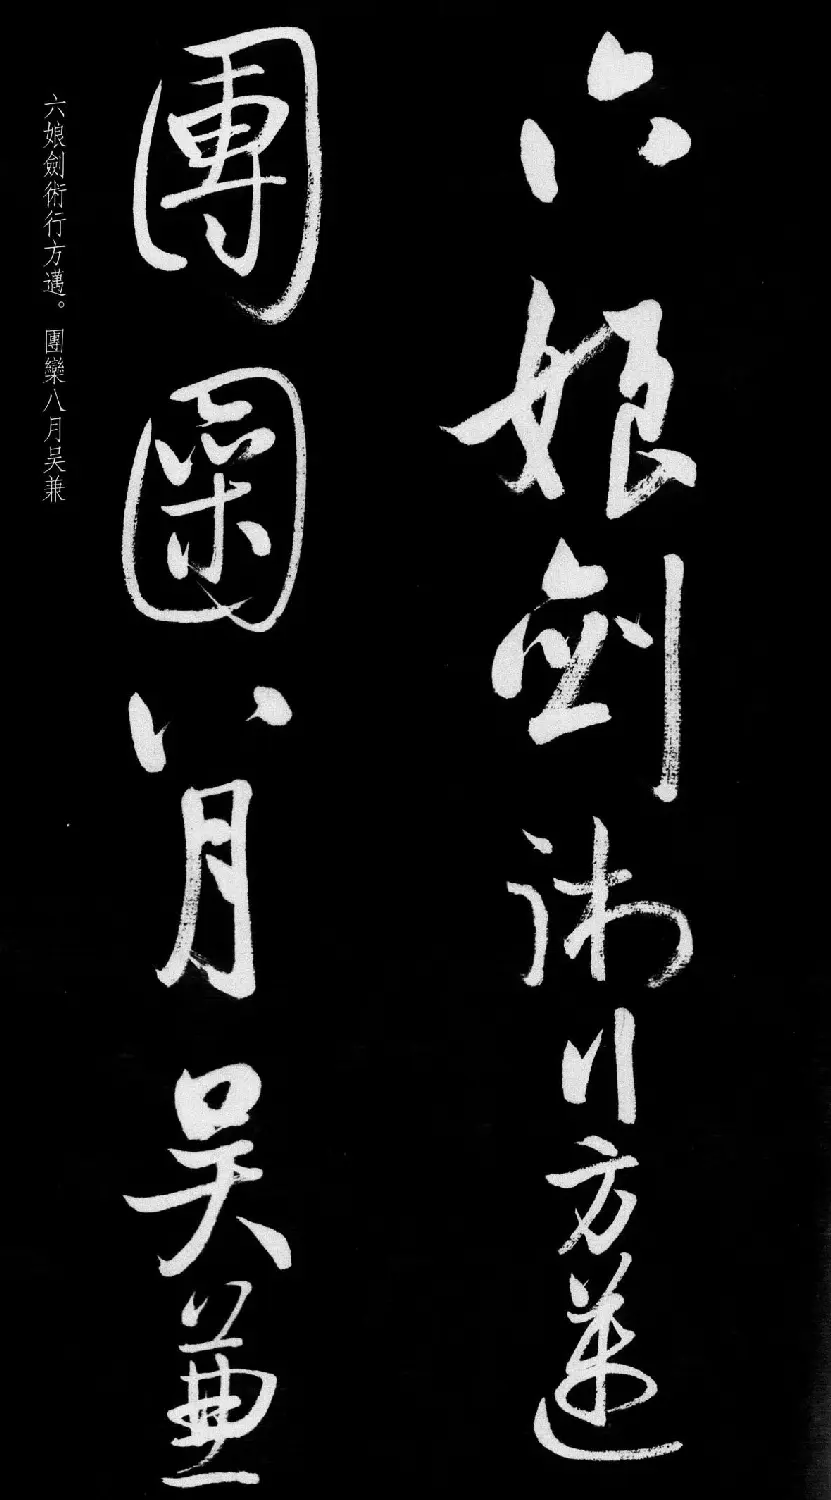 六娘劍術行方邁
團圞八月吳兼
六娘劍術行方邁。團欒八月吳兼